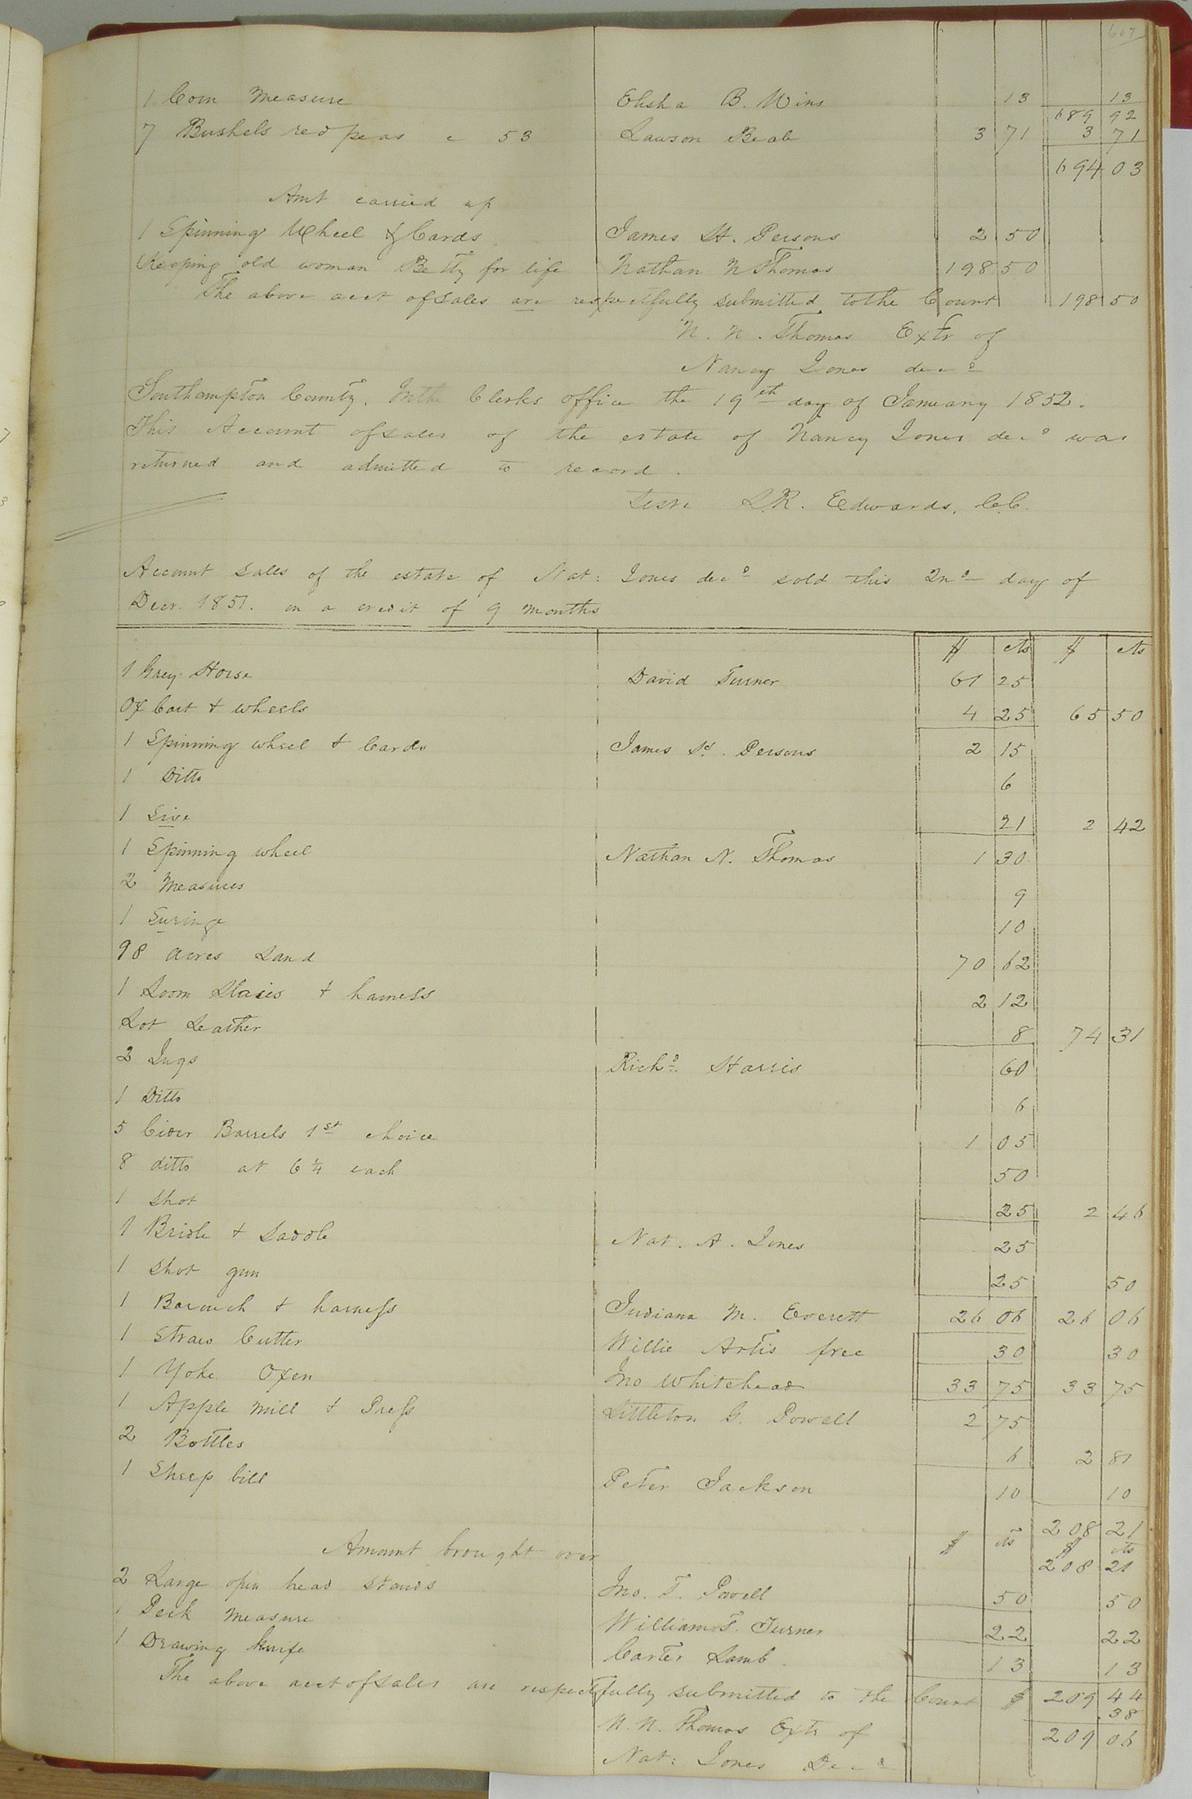 607
1 Corn Measure Elisha B. Wins 13 13
689 92
7 Bushels red peas c 53 Lawson Beale 3 71 3 71
694 03
Amt carried up
1 Spinning Wheel & Cards James H. Persons 2 50
Keeping old woman Betty for life Nathan N Thomas 198 50
The above acct of sales are respectfully submitted to the Court 198 50
N. N. Thomas Extr of
Nancy Jones decd
Southampton County. In the Clerks office the 19th day of January 1852.
This Account of sales of the estate of Nancy Jones decd was
returned and admitted to record.
Teste L.R. Edwards, C.C.
Account sales of the estate of Nat: Jones decd sold this 2nd day of
Decr. 1851. on a credit of 9 months
$ cts $ cts
1 Grey Horse David Turner 61 25
Ox Cart & wheels 4 25 65 50
1 Spinning wheel & Cards James H. Persons 2 15
1 Ditto 6
1 Sive 21 2 42
1 Spinning wheel Nathan N. Thomas 1 30
2 Measures 9
1 Suringe 10
98 acres Land 70 62
1 Loom Slaies & harness 2 12
Lot Leather 8 74 31
2 Jugs Richd. Harris 60
1 Ditto 6
5 Cider Barrels 1st choice 1 05
8 ditto at 6 1/4 each 50
1 Shot 25 2 46
1 Bridle & Saddle Nat. A. Jones 25
1 Shot gun 25 50
1 Barouch & harness Indiana M. Everett 26 06 26 06
1 Straw Cutter Willie Artis free 30 30
1 Yoke Oxen Jno Whitehead 33 75 33 75
1 Apple Mill & Press Littleton G. Powell 2 75
2 Bottles 6 2 81
1 Sheep bill Peter Jackson 10 10
208 21
$ cts $ cts
Amount brought over 208 21
2 Large open head Stands Jno. T. Powell 50 50
1 Peck Measure William T. Turner 22 22
1 Drawing knife Carter Lamb. 13 13
The above acct of sales are respectfully submitted to the Court $ 209 44
38
N. N. Thomas Extr of 209 06
Nat: Jones Decd